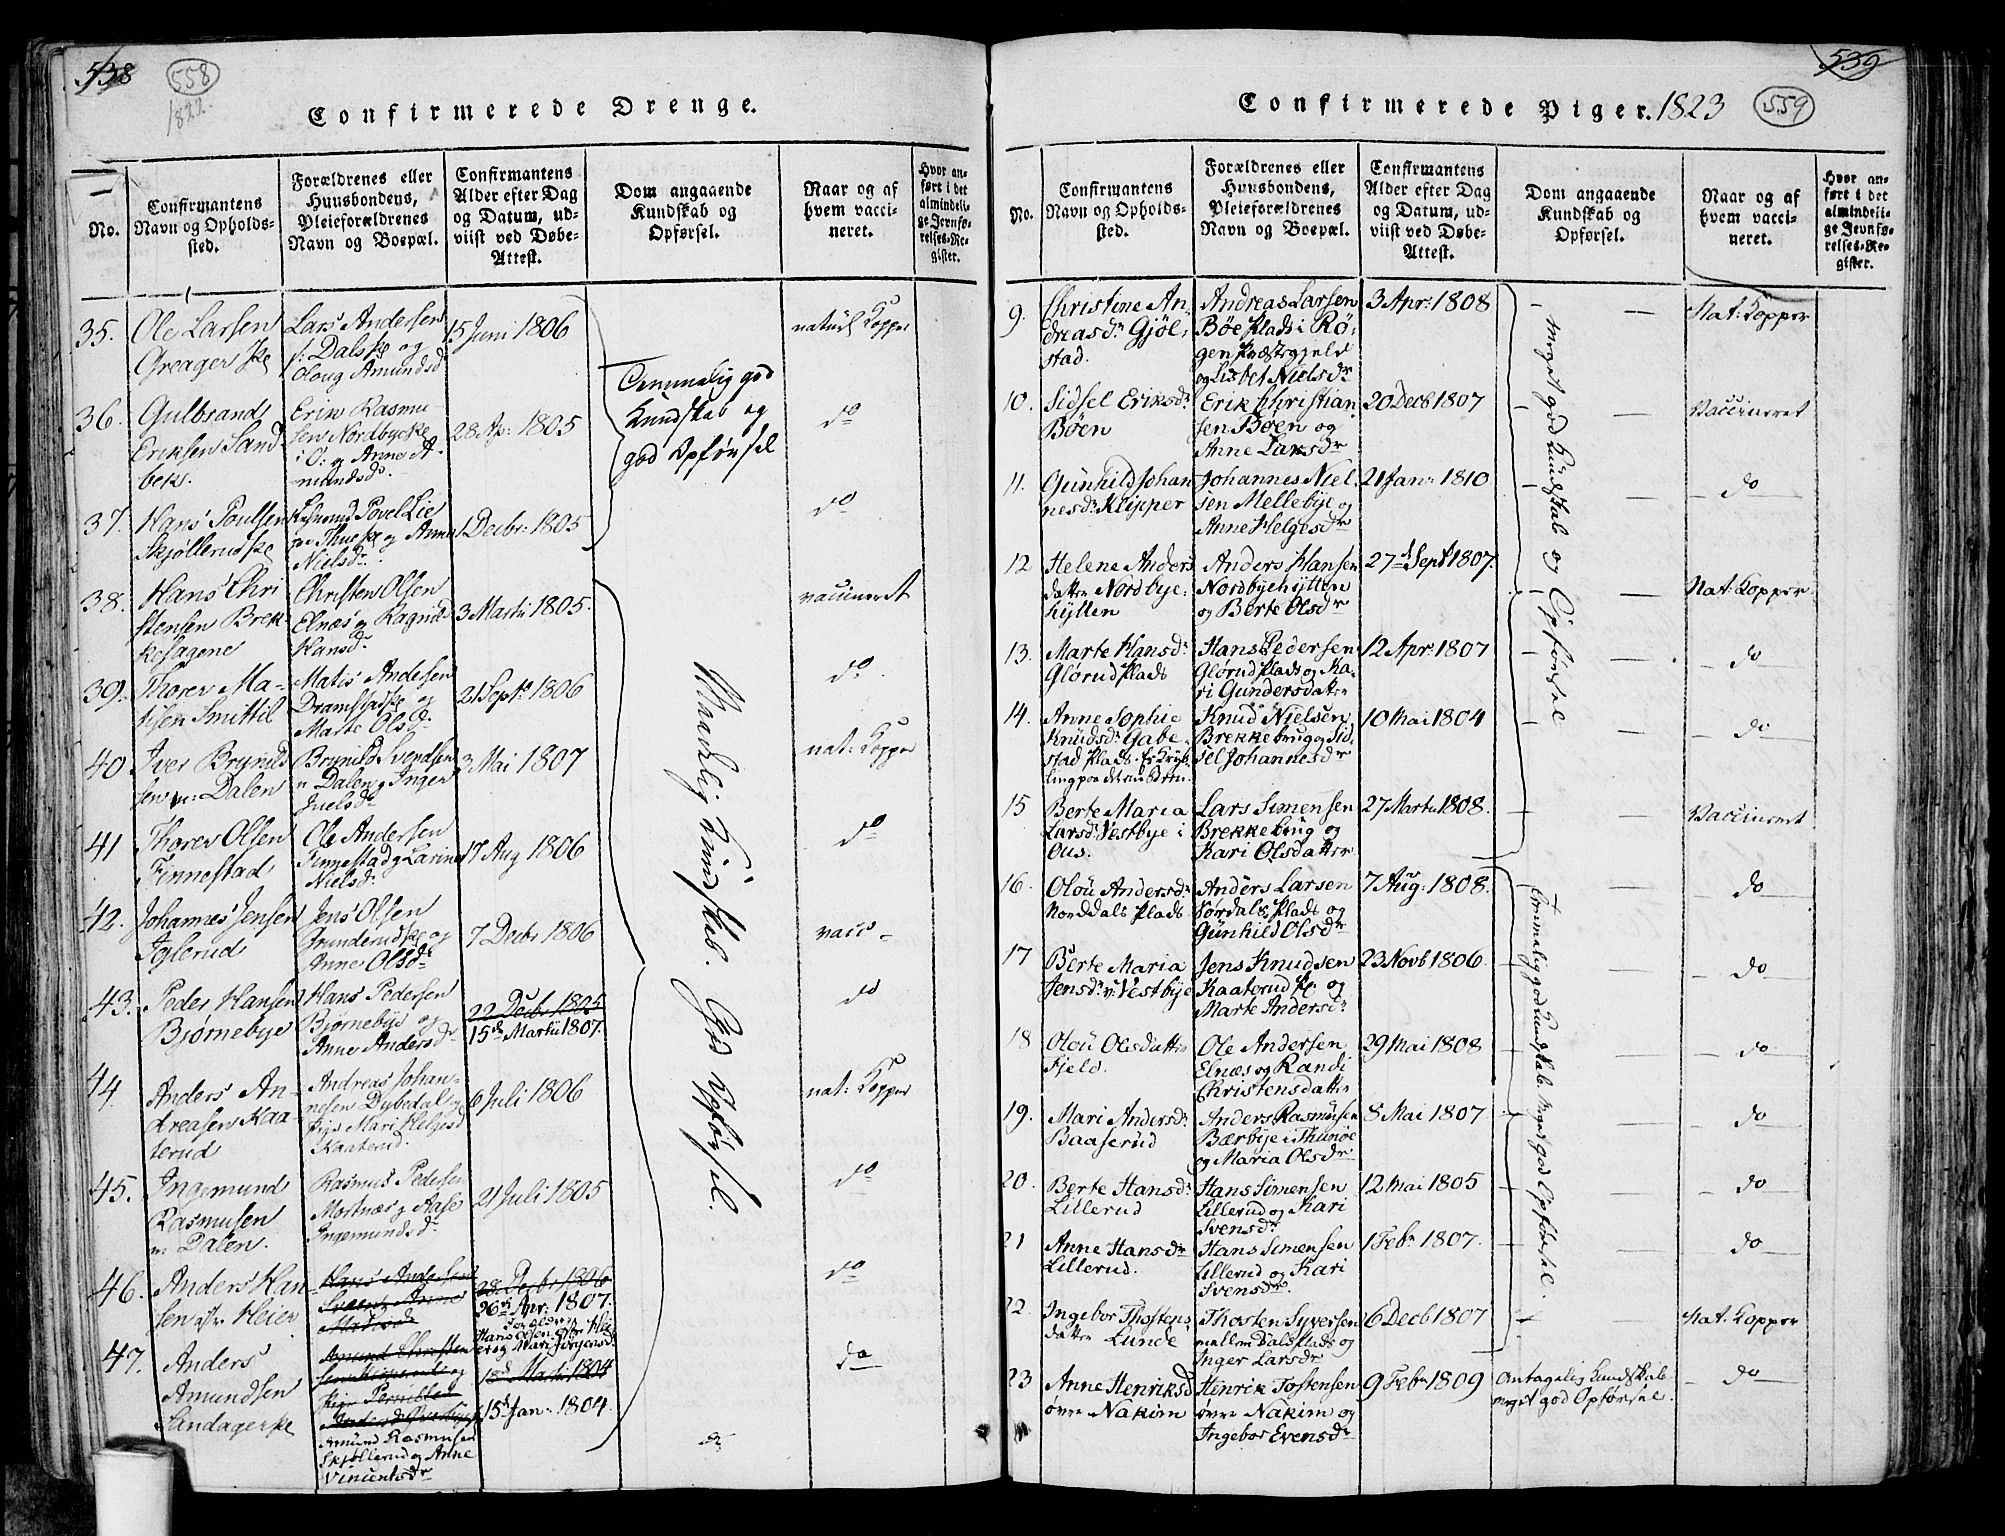 538
558
1822.
Confirmerede Drenge.
No.
Confirmantens
Navn og Opholds-
sted.
Forældrenes eller
Huusbondens,
Pleieforældrenes
Navn og Boepæl.
Confirmantens
Alder efter Dag
og Datum, ud-
viist ved Døbe-
Attest.
Dom angaaende
Kundskab og
Opførsel.
Naar og af
hvem vacci-
neret.
Hvor an-
ført i det
almindeli-
ge Jevnfø-
relses-Re-
gister.
35.
Ole Larsen
Greager
Lars Andersen
Dals og
Oloug Amundsd
15 Juni 1806
naturl Kopper
36.
Gulbrand
Eriksen Sand
bek.
Erik Rasmu
sen Nordbycke
i O: og Anne A-
mundsd.
28 Ap: 1805
do
Temmelig god
Kundskab og
god Opførsel
37.
Hans Poulsen
Skjøllerud
Povel Lie
og Anne
Nielsd.
1 Decbr: 1805
do
38.
Hans Chri
stensen Brek
kesagene
Christen Olsen
Elnæs og Ragnil
Hansd.
3 Martii 1805.
vaccineret
39.
Thorer Ma-
tisen Smittil
Matis Andersen
Dramstad og
Marte Olsd.
21 Septb 1806
do.
40
Iver Brynild
sen n: Dalen
Brynild Svendsen
n Dalen og Inger
Juelsd.
3 Mai 1807
nat: Kopper
41
Thorer Olsen
Finnestad
Ole Andersen
Finnestad og Larine
Nielsd.
17 Aug 1806
do
42.
Johannes Jensen
Iglerud
Jens Olsen
Grunderud og
Anne Olsd.
7 Decbr 1806
vacc
43.
Peder Hansen
Bjørnebye
Hans Pedersen
Bjørnebye og
Anne Andersdr
22 Decbr 1805
15d Martii 1807.
do
44
Anders An-
dreasen Kaa
terud
Andreas Johan-
nesen Dybedal og
Mari Helgesd
Kaaterud.
6 Juli 1806
nat: Kopper
45.
Ingemund
Rasmusen
n Dalen.
Rasmus Pedersen
Mortnæs og Aase
Ingemundsd.
21 Juli 1805
do
46.
Anders Han
sen østre Heier
Hans Andersen
28 Decbr 1806
26de Apr: 1807.
Forældre
Hans Olsen østre Hei
er og Mari Jørgensd.
do
47.
Anders
Amundsen
Sandager
Amund Christen
sen
18d Martii 1804
15d Jan: 1804.
Amund Rasmusen
Skjøllerud og Anne
Vincentsdr
do
do
Maadelig Kundskab. God Opførsel.
Confirmerede Piger. 1823
559
539
No.
Confirmantens
Navn og Opholds-
sted.
Forældrenes eller
Huusbondens,
Pleieforældrenes
Navn og Boepæl.
Confirmantens
Alder efter Dag
og Datum, ud-
viist ved Døbe-
Attest.
Dom angaaende
Kundskab og
Opførsel.
Naar og af
hvem vacci-
neret.
Hvor an-
ført i det
almindeli-
ge Jevnfø-
relses-Re-
gister.
9.
Christine An-
dreasdr Gjøl-
stad.
Andreas Larsen
Böe Plads i Rö-
gen Præstegjeld
og Lisbet Nielsdr
3 Apr: 1808
Nat: Kopper
10.
Sidsel Eriksdr
Böen
Erik Christian
sen Böen og
Anne Larsdr
20 Decb 1807
Vaccineret
11.
Gunhild Johan
nesdr Klipper
Johannes Niel
sen Mellebye og
Anne Helgesdr
21 Jan: 1810
do
12
Helene Anders
datter Nordbye-
hytten
Anders Hansen
Nordbyehytten
og Berte Olsdr
27d Sept 1807.
Nat: Kopper
13.
Marte Hansdr
Glørud Plads
Hans Pedersen
Glørud Plads og Ka-
ri Gundersdatter
12 Apr: 1807
do
14.
Anne Sophie
Knudsdr Gabe-
stad Plads. Er Krøb-
ling paa det ene Been.
Knud Nielsen
Brekkebrug og Sid
sel Johannesdr
10 Mai 1804
do
15
Berte Maria
Larsdr Vestbye i
Ous.
Lars Simensen
Brekkebrug og
Kari Olsdatter
27 Martii 1808.
Vaccineret
Meget god Kundskab og Opførsel
16.
Olou Andersdr
Norddals Plads
Anders Larsen
Nordals Plads og
Gunhild Olsdr
7 Aug: 1808.
do
17
Berte Maria
Jensdr v: Vestbye
Jens Knudsen
Kaaterud og
Marte Andersdr
23 Novb 1806.
do
18
Olou Olsdatter
Fjeld.
Ole Andersen
Elnæs og Randi
Christensdatter
29 Mai 1808
do
19.
Mari Andersdr
Baaserud
Anders Rasmusen
Bærbye i Thunøe
og Maria Olsdr
8 Mai 1807
do
20.
Berte Hansdr
Lillerud
Hans Simensen
Lillerud og Kari
Svensdr
12 Mai 1805
do
21
Anne Hansdr
Lillerud.
Hans Simensen
Lillerud og Kari
Svensdr.
1 Febr 1807.
do
22.
Ingebor Thostens
datter Lunde
Thosten Syversen
mellem Dals Plads og
Inger Larsdr
6 Decb 1807
Nat. Kopper
Temmelig god Kundskab. Meget god Opførsel.
23
Anne Henriksd
øvre Nakim
Henrik Tostensen
øvre Nakim og
Ingebor Evensdr
9 Febr 1809
Antagelig Kundskab
meget god Opførsel.
do